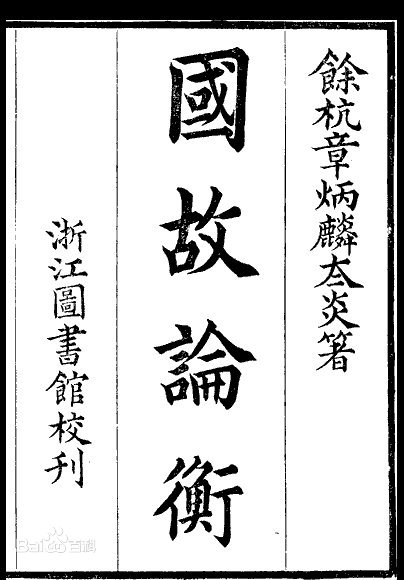 餘杭章炳麟太炎箸
國故論衡
浙江圖書館校刊
Baidu百科